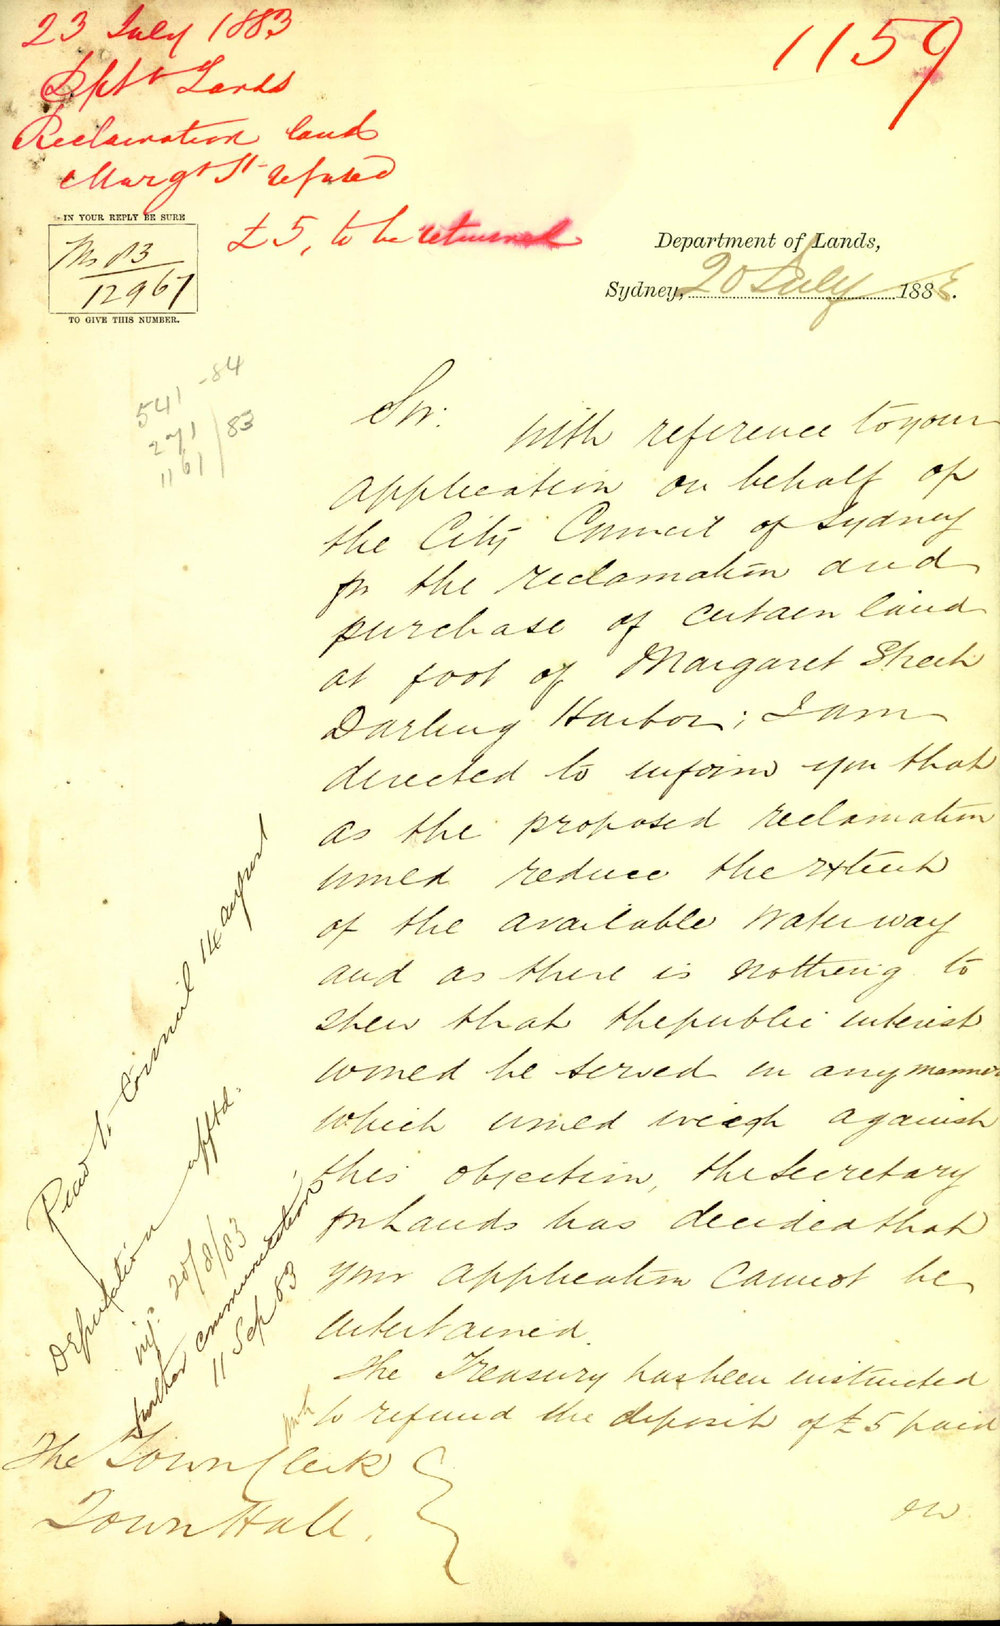 23 July 1883
1159
Dpt Lands
Reclamation land
Margt St refused
£5, to be returned
IN YOUR REPLY BE SURE
Ms 83
12967
TO GIVE THIS NUMBER.
Department of Lands,
Sydney, 20 July 1883.
541-84
271
1161 / 83
Sir:
With reference to your
application on behalf of
the City Council of Sydney
for the reclamation and
purchase of certain land
at foot of Margaret Street
Darling Harbor; I am
directed to inform you that
as the proposed reclamation
would reduce the extent
of the available waterway
and as there is nothing to
shew that the public interest
would be served in any manner
which would weigh against
this objection, the Secretary
for Lands has decided that
your application cannot be
entertained.
The Treasury has been instructed
to refund the deposit of £5 paid
on
The Town Clerk
Town Hall.
Read to Council 14 August
Deputation apptd.
20/8/83
further communication
11 Sep 83